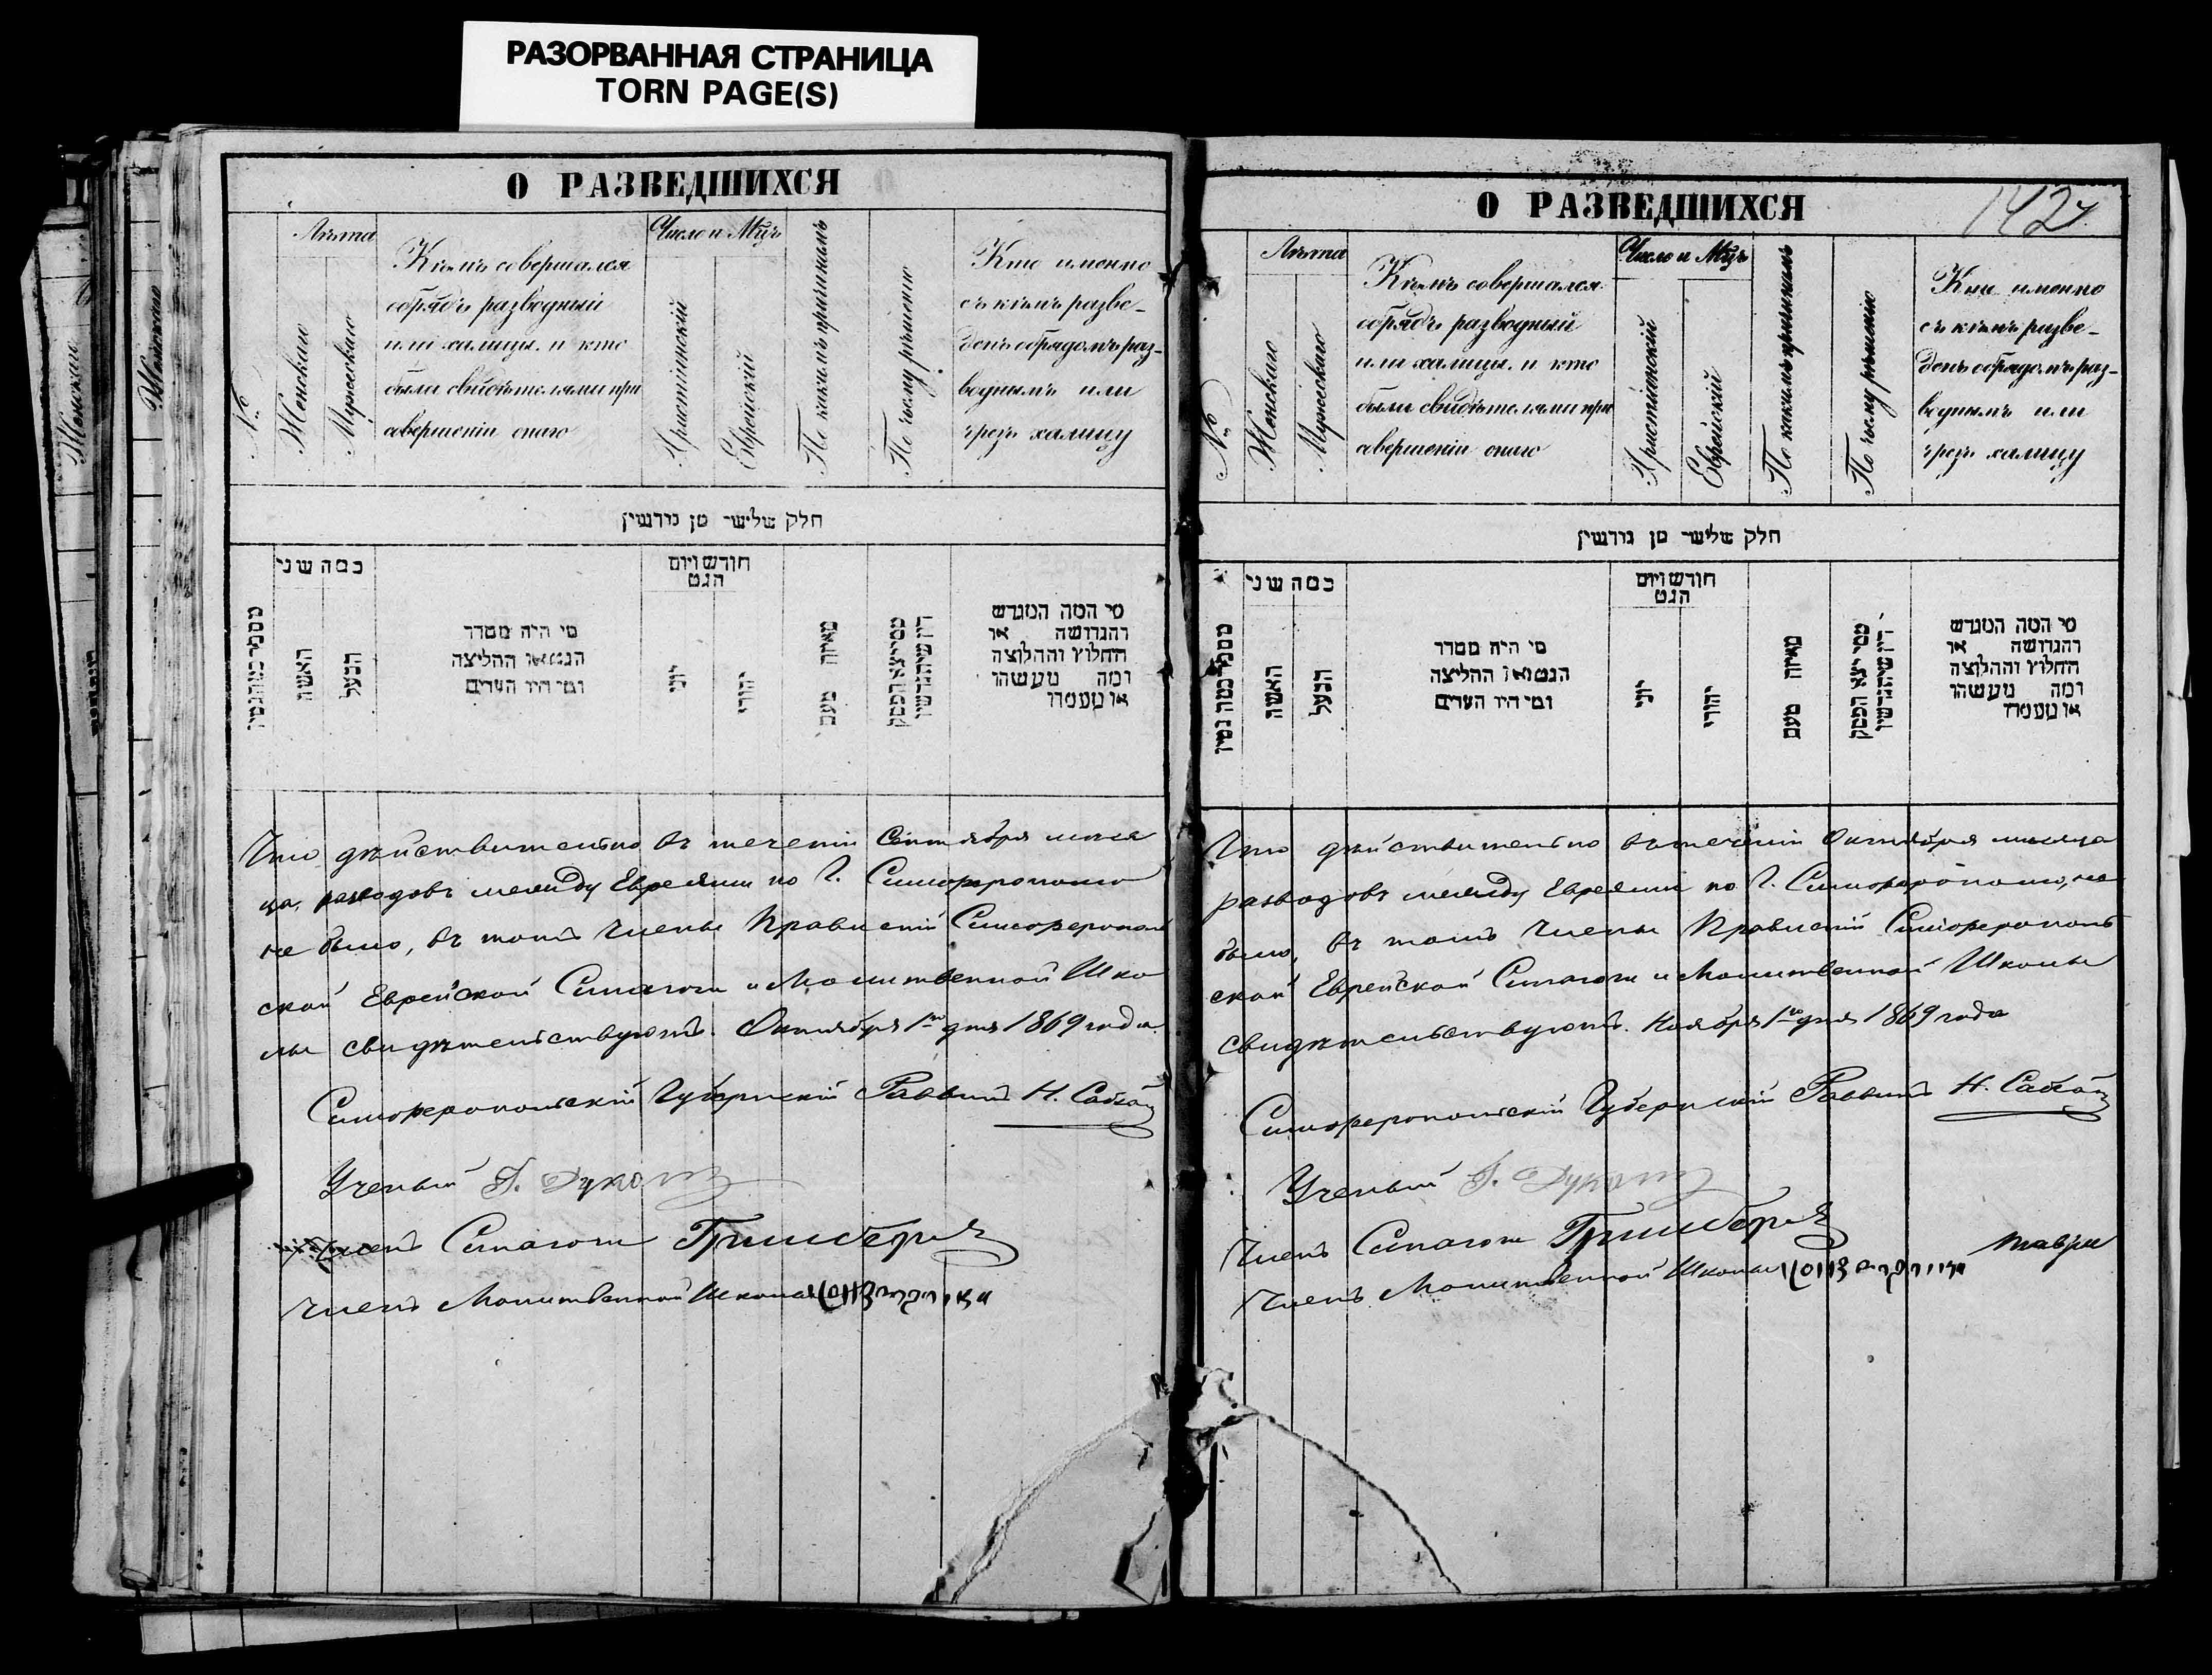 РАЗОРВАННАЯ СТРАНИЦА
TORN PAGE(S)
О РАЗВЕДШИХСЯ
№
Лѣта
Женскаго
Мужескаго
Кѣмъ совершался
обрядъ разводный
или халицы. и кто
были свидѣтелями при
совершеніи онаго
Число и Мцъ
Христіянскій
Еврейскій
По какимъ причинамъ
По чьему рѣшенію
Кто именно
съ кѣмъ разве-
денъ обрядомъ раз-
воднымъ или
чрезъ халицу
חלק שלישי מן גירושין
כמה שני
האשה
הבעל
מי היה מסדר
הגט או החליצה
ומי היו העדים
חודש ויום
הגט
יוני
יהודי
מאיזה טעם
מי המה המגרש
והגרושה או
החלוץ והחלוצה
ומה מעשהו
או מעמדו
Что дѣйствительно въ теченіи Сентября меся
ца, разводовъ между Евреями по Г. Симферополю
не было, въ томъ Члены Правленій Симферополь
ской Еврейской Синагоги и Молитвенной Шко
лы свидѣтельствуютъ. Октября 1го дня 1869 года.
Симферопольскій Губернскій Раввинъ Н.
Ученый
Членъ Синагоги
Членъ Молитвенной Школы
О РАЗВЕДШИХСЯ
142
№
Лѣта
Женскаго
Мужескаго
Кѣмъ совершался
обрядъ разводный
или халицы. и кто
были свидѣтелями при
совершеніи онаго
Число и Мцъ
Христіянскій
Еврейскій
По какимъ причинамъ
По чьему рѣшенію
Кто именно
съ кѣмъ разве-
денъ обрядомъ раз-
воднымъ или
чрезъ халицу
חלק שלישי מן גירושין
כמה שני
האשה
הבעל
מי היה מסדר
הגט או החליצה
ומי היו העדים
חודש ויום
הגט
יוני
יהודי
מאיזה טעם
מי המה המגרש
והגרושה או
החלוץ והחלוצה
ומה מעשהו
או מעמדו
Что дѣйствительно въ теченіи Октября месяца
разводовъ между Евреями по Г. Симферополю, не
было, въ томъ Члены Правленій Симферополь
ской Еврейской Синагоги и Молитвенной Школы
свидѣтельствуютъ. Ноября 1го дня 1869 года
Симферопольскій Губернскій Раввинъ Н.
Ученый
Членъ Синагоги
Членъ Молитвенной Школы